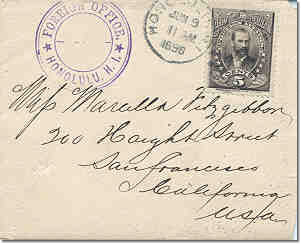 FOREIGN OFFICE.
HONOLULU, H. I.
HONOLULU
JUN 9
11 AM
1896
5
Miss Marcella Fitzgibbon
200 Haight Street
San Francisco
California
U.S.A.